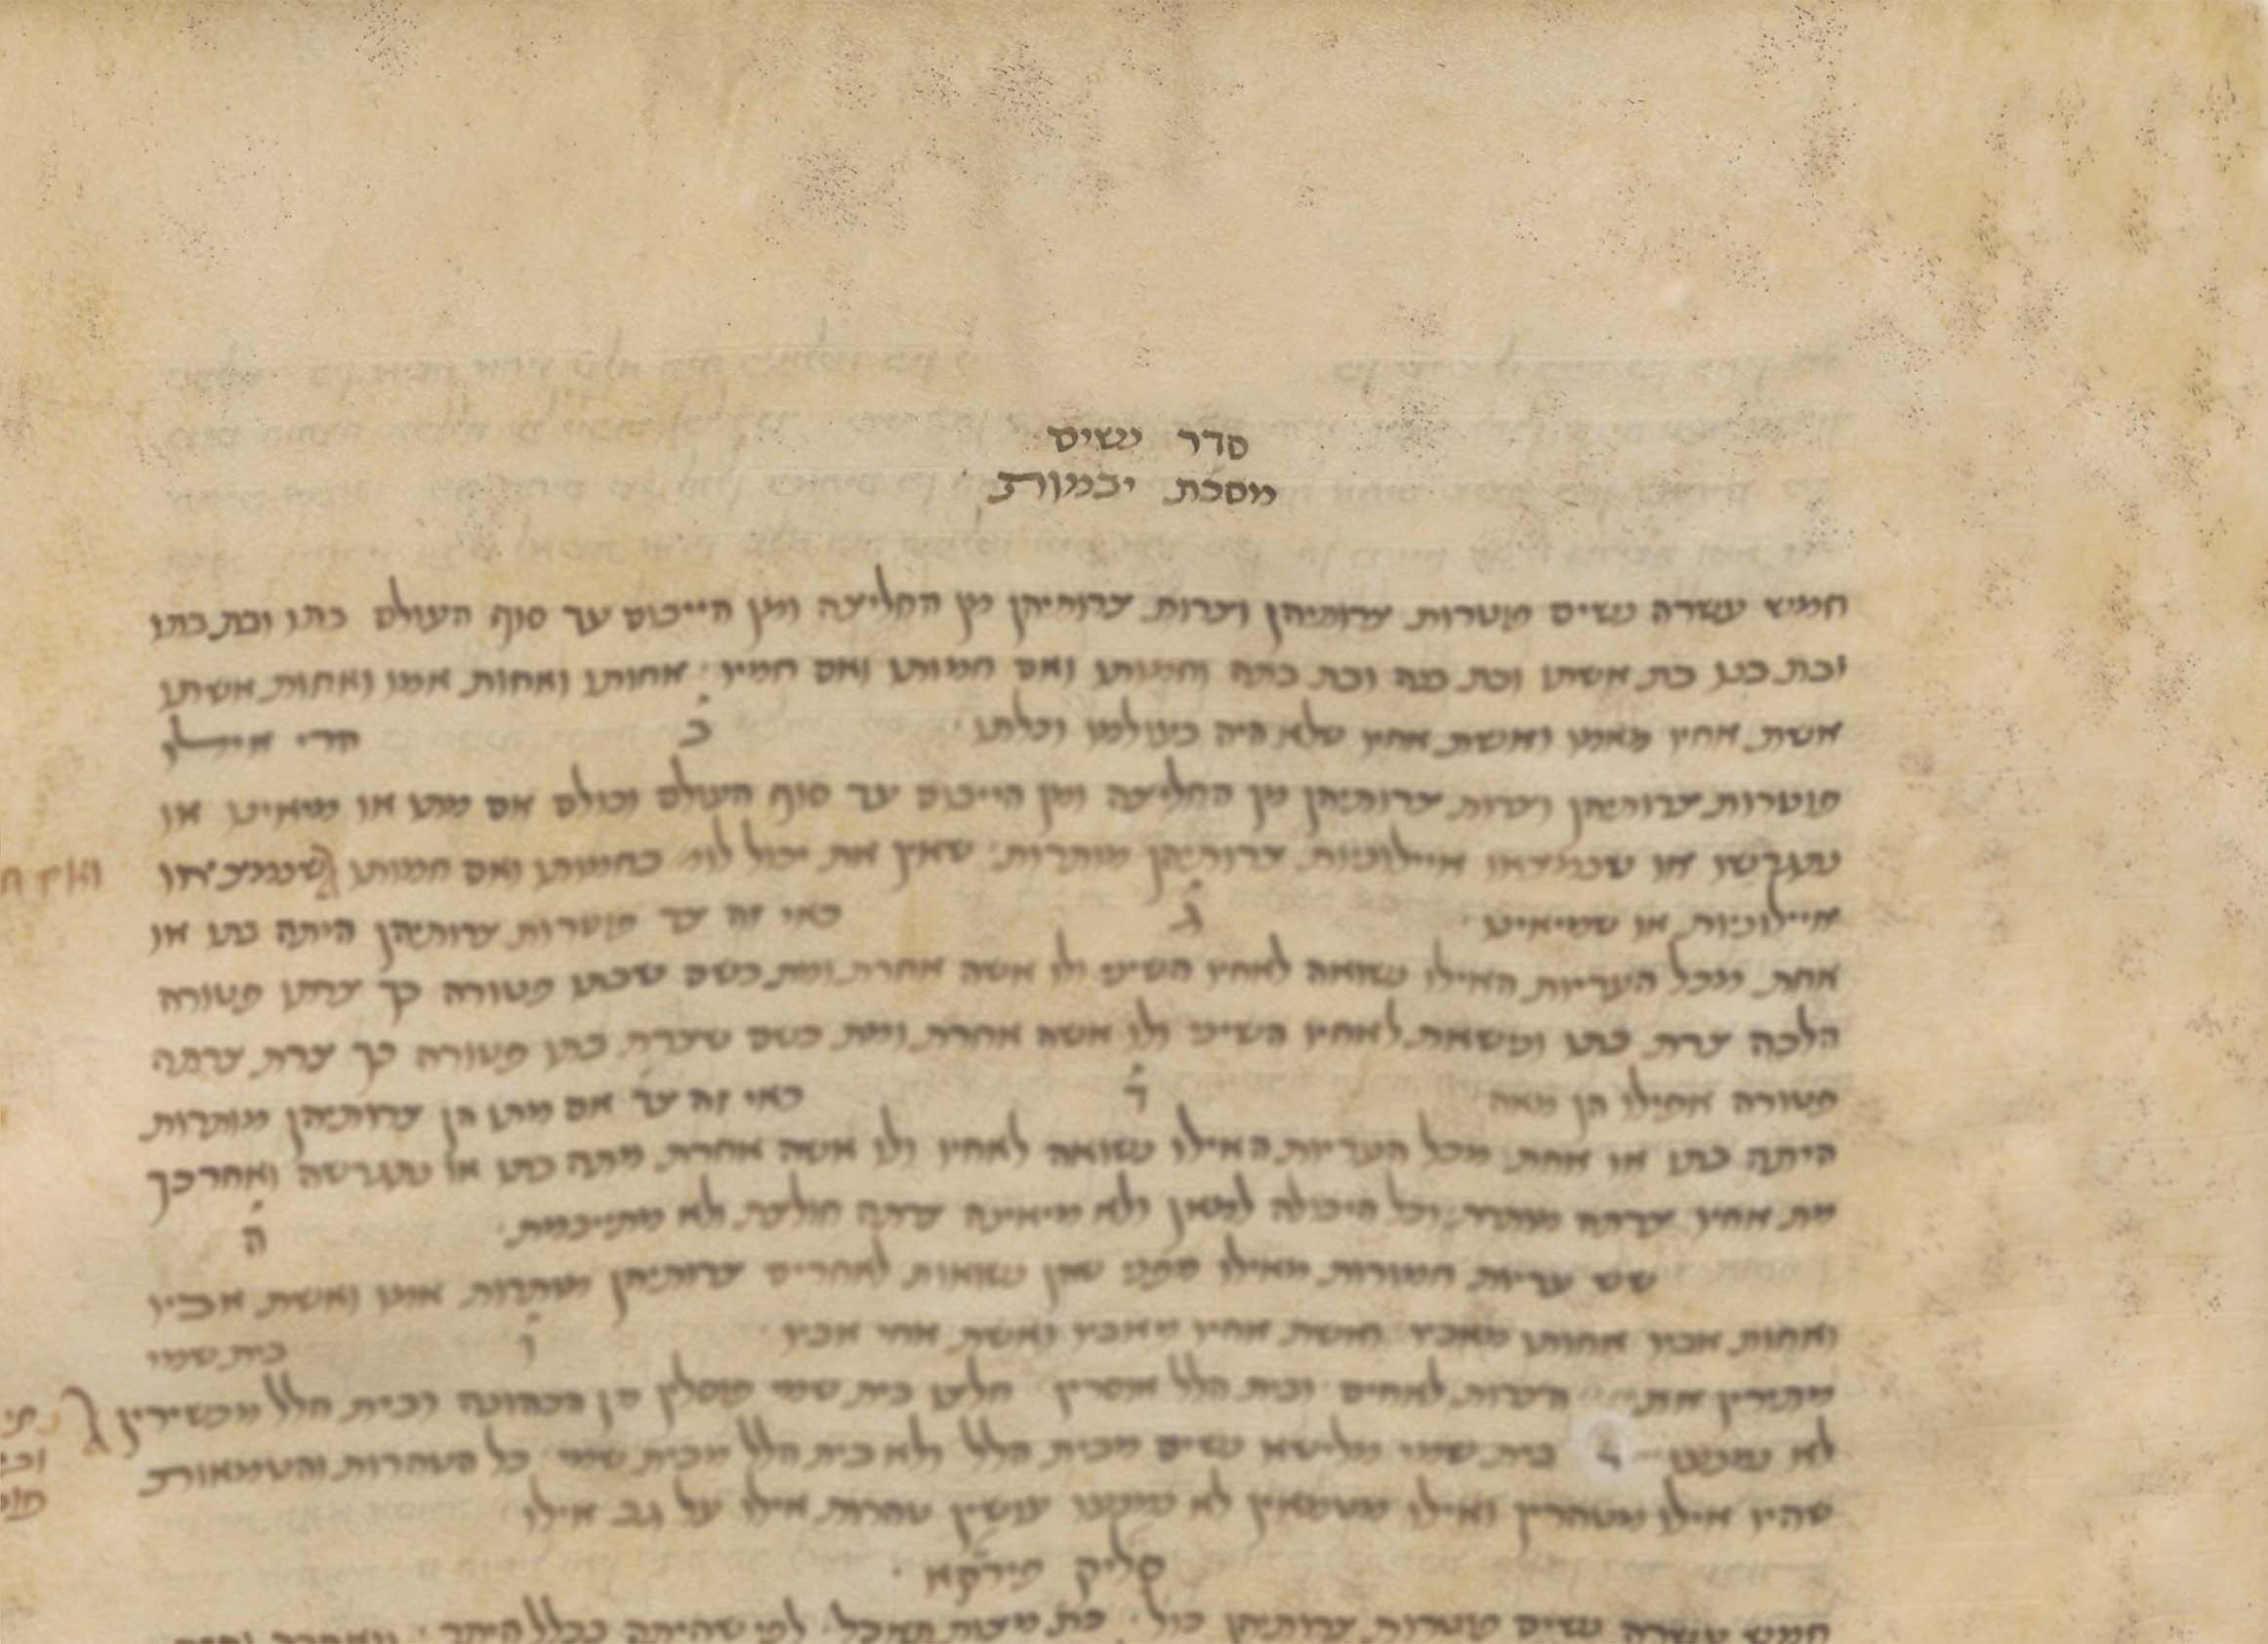 סדר נשים
מסכת יבמות
חמש עשרה נשים פוטרות צרותיהן וצרות צרותיהן מן החליצה ומן הייבום עד סוף העולם בתו ובת בתו
ובת בנו בת אשתו ובת בנה ובת בתה חמותו ואם חמותו ואם חמיו אחותו ואחות אמו ואחות אשתו
אשת אחיו מאמו ואשת אחיו שלא היה בעולמו וכלתו ב הרי אילו
פוטרות צרותיהן וצרות צרותיהן מן החליצה ומן הייבום עד סוף העולם וכולם אם מתו או מיאינו או
נתגרשו או שנמצאו איילוניות צרותיהן מותרות שאין את יכול לומ בחמותו ואם חמותו שנמצאו
איילוניות או שמיאינו ג כאי זה צד פוטרות צרותיהן היתה בתו או
אחת מכל העריות האילו נשואה לאחיו השיני ולו אשה אחרת ומת כשם שבתו פטורה כך צרתו פטורה
הלכה צרת בתו ונשאת לאחיו השיני ולו אשה אחרת ומת כשם שצרת בתו פטורה כך צרת צרתה
פטורה אפילו הן מאה ד כאי זה צד אם מתו הן צרותיהן מותרות
היתה בתו או אחת מכל העריות האילו נשואה לאחיו ולו אשה אחרת מתה בתו או נתגרשה ואחר כך
מת אחיו צרתה מותרת וכל היכולה למאן ולא מיאינה צרתה חולצת ולא מתייבמת ה
שש עריות חמורות מאילו מפני שהן נשואות לאחרים צרותיהן מותרות אמו ואשת אביו
ואחות אביו אחותו מאביו ואשת אחיו מאביו ואשת אחי אביו ו בית שמי
מתירין את הצרות לאחים ובית הלל אוסרין חלצו בית שמי פוסלין מן הכהונה ובית הלל מכשירין
לא נמנעו בית שמי מלישא נשים מבית הלל ולא בית הלל מבית שמי כל הטהרות והטמאות
שהיו אילו מטהרין ואילו מטמאין לא נמנעו עושין טהרות אילו על גב אילו
סליק פירקא
חמש עשרה נשים פוטרות צרותיהן כול